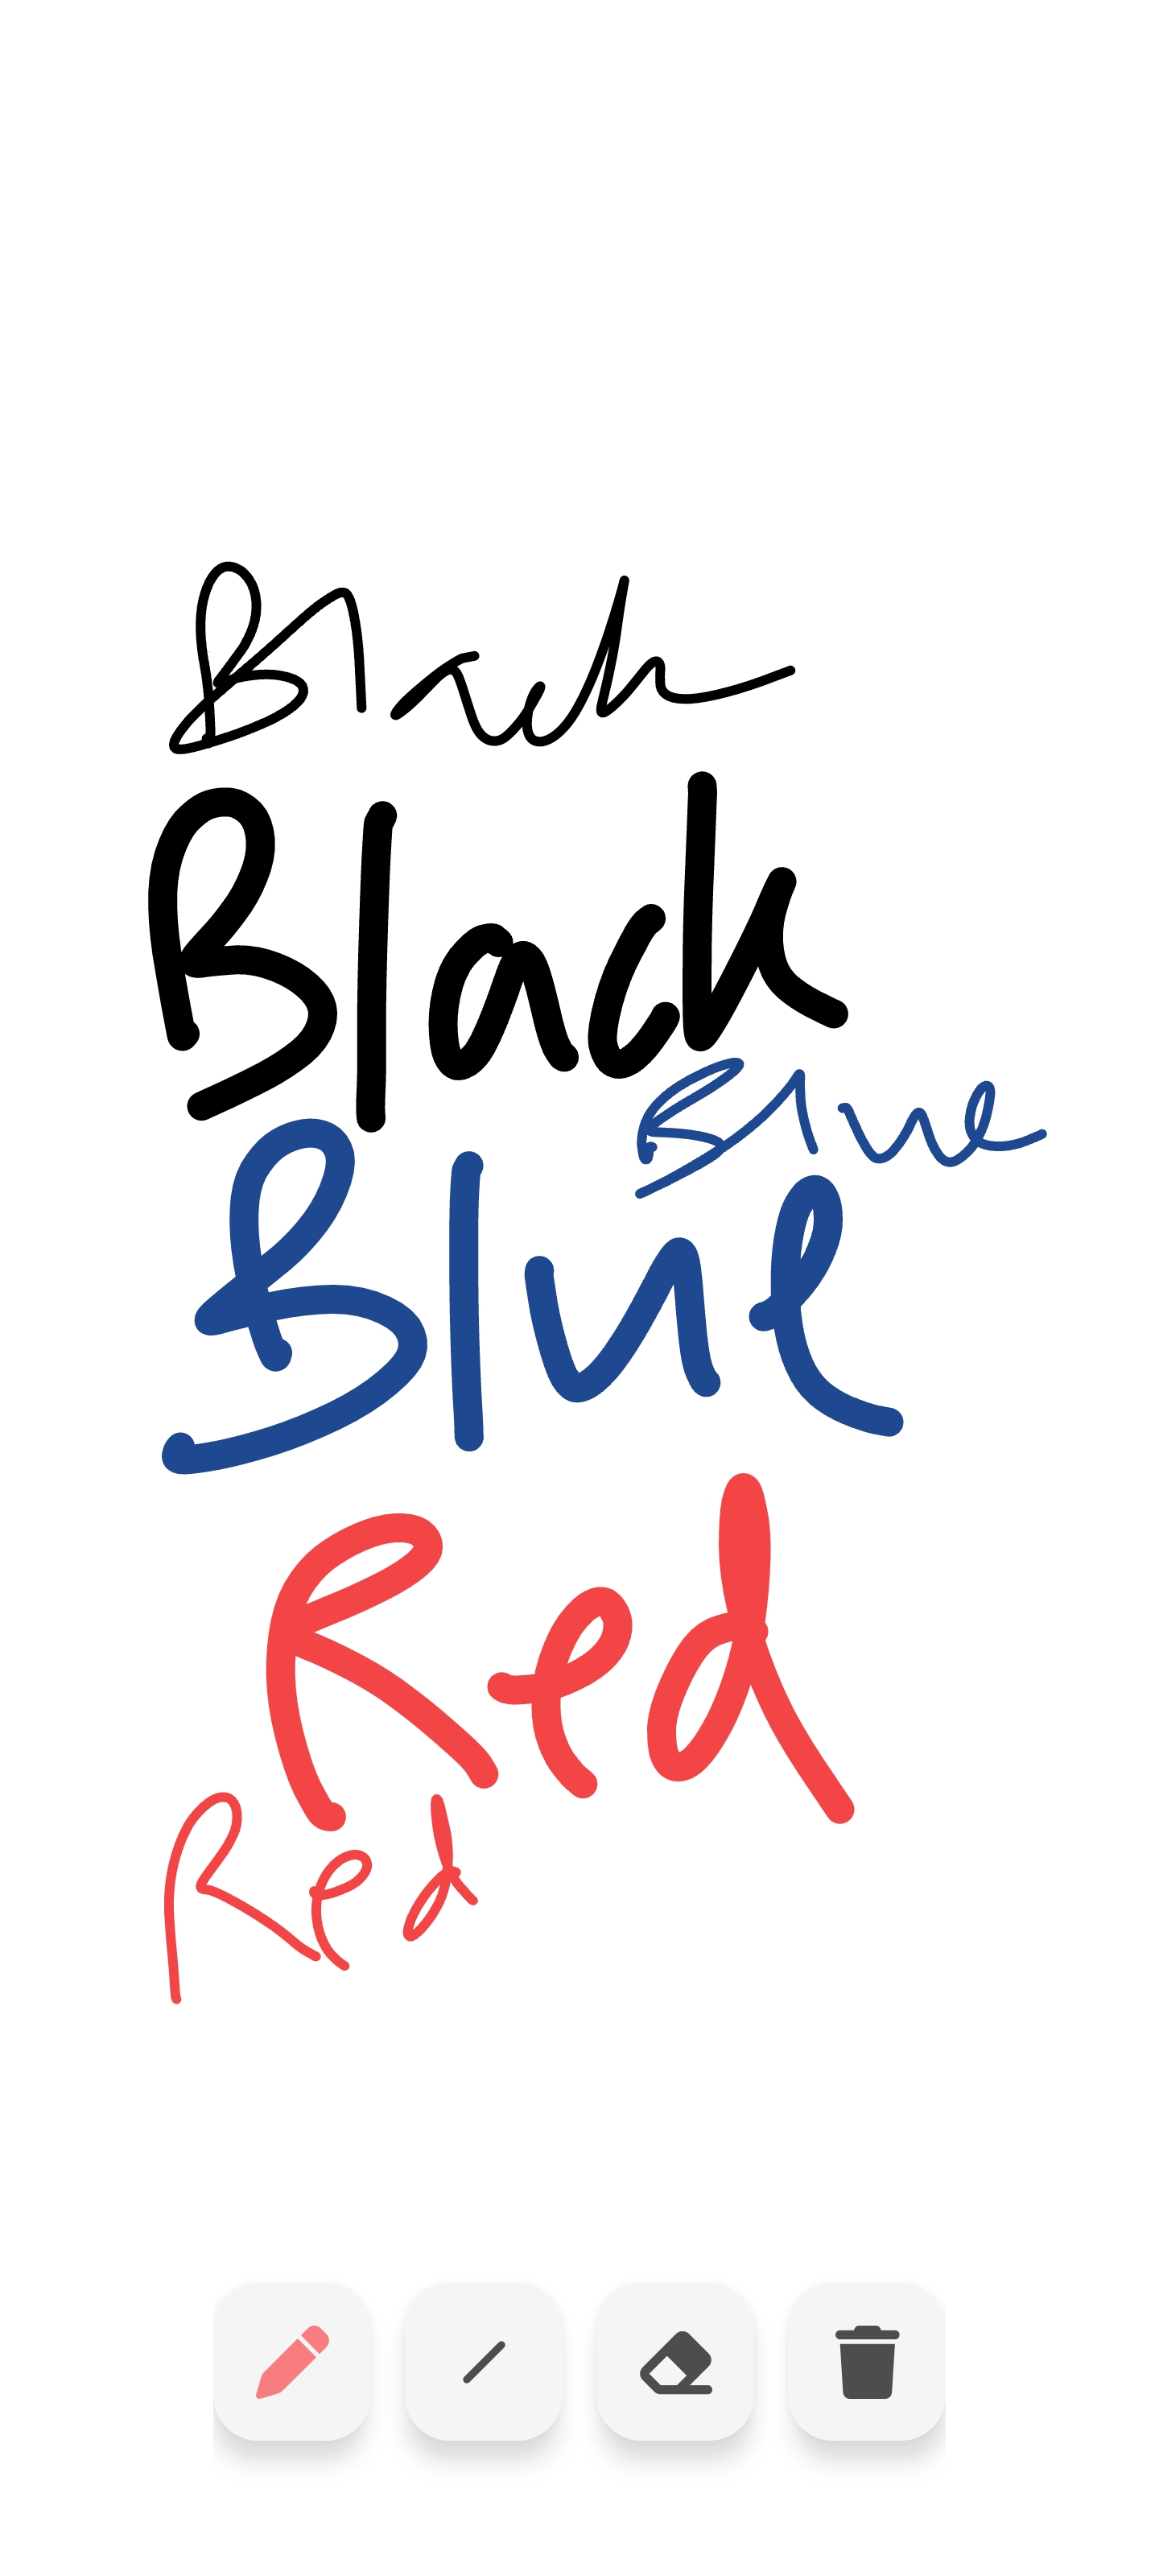 Black
Black
Blue
Blue
Red
Red